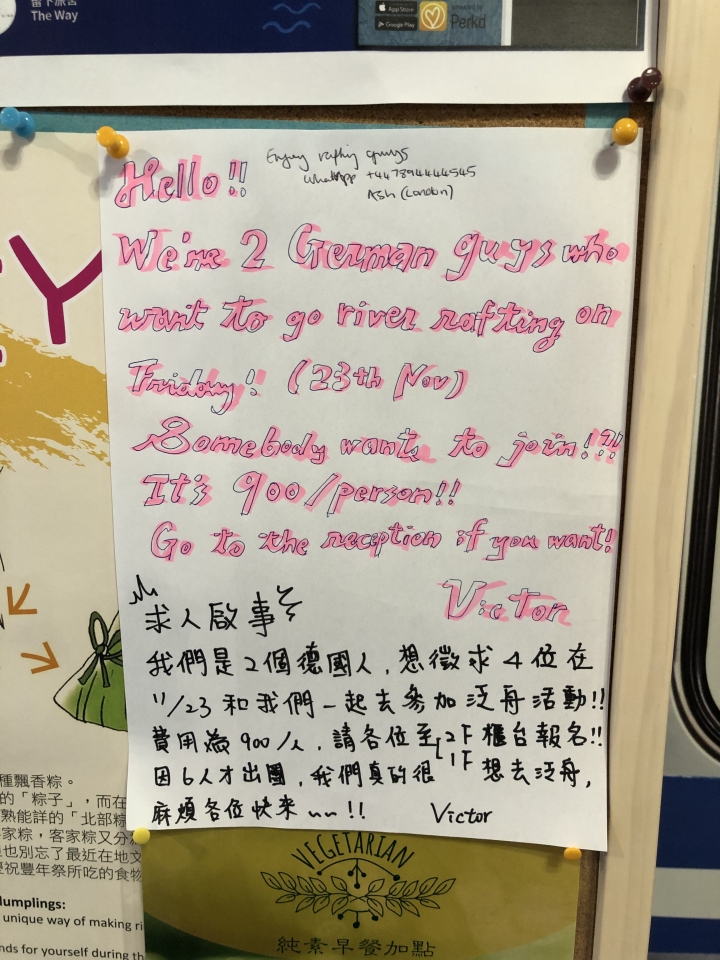 留下旅宿
The Way
App Store
Google Play
Perkd
Y
Hello!!
Enjoy rafting guys
WhatsApp +447894444545
Ash (London)
We're 2 German guys who
want to go river rafting on
Friday!! (23th Nov)
Somebody wants to join!?!
It's 900/person!!
Go to the reception if you want!
Victor
求人啟事
我們是2個德國人,想徵求4位在
11/23和我們一起去參加泛舟活動!!
費用為900/人,請各位至[2F 1F 櫃台報名!!
因6人才出團,我們真的很想去泛舟,
麻煩各位快來~~!!
Victor
種飄香粽。
的「粽子」,而在
熟能詳的「北部粽
家粽,客家粽又分
也別忘了最近在地文
豐年祭所吃的食物
dumplings:
unique way of making ri
nds for yourself during th
VEGETARIAN
純素早餐加點